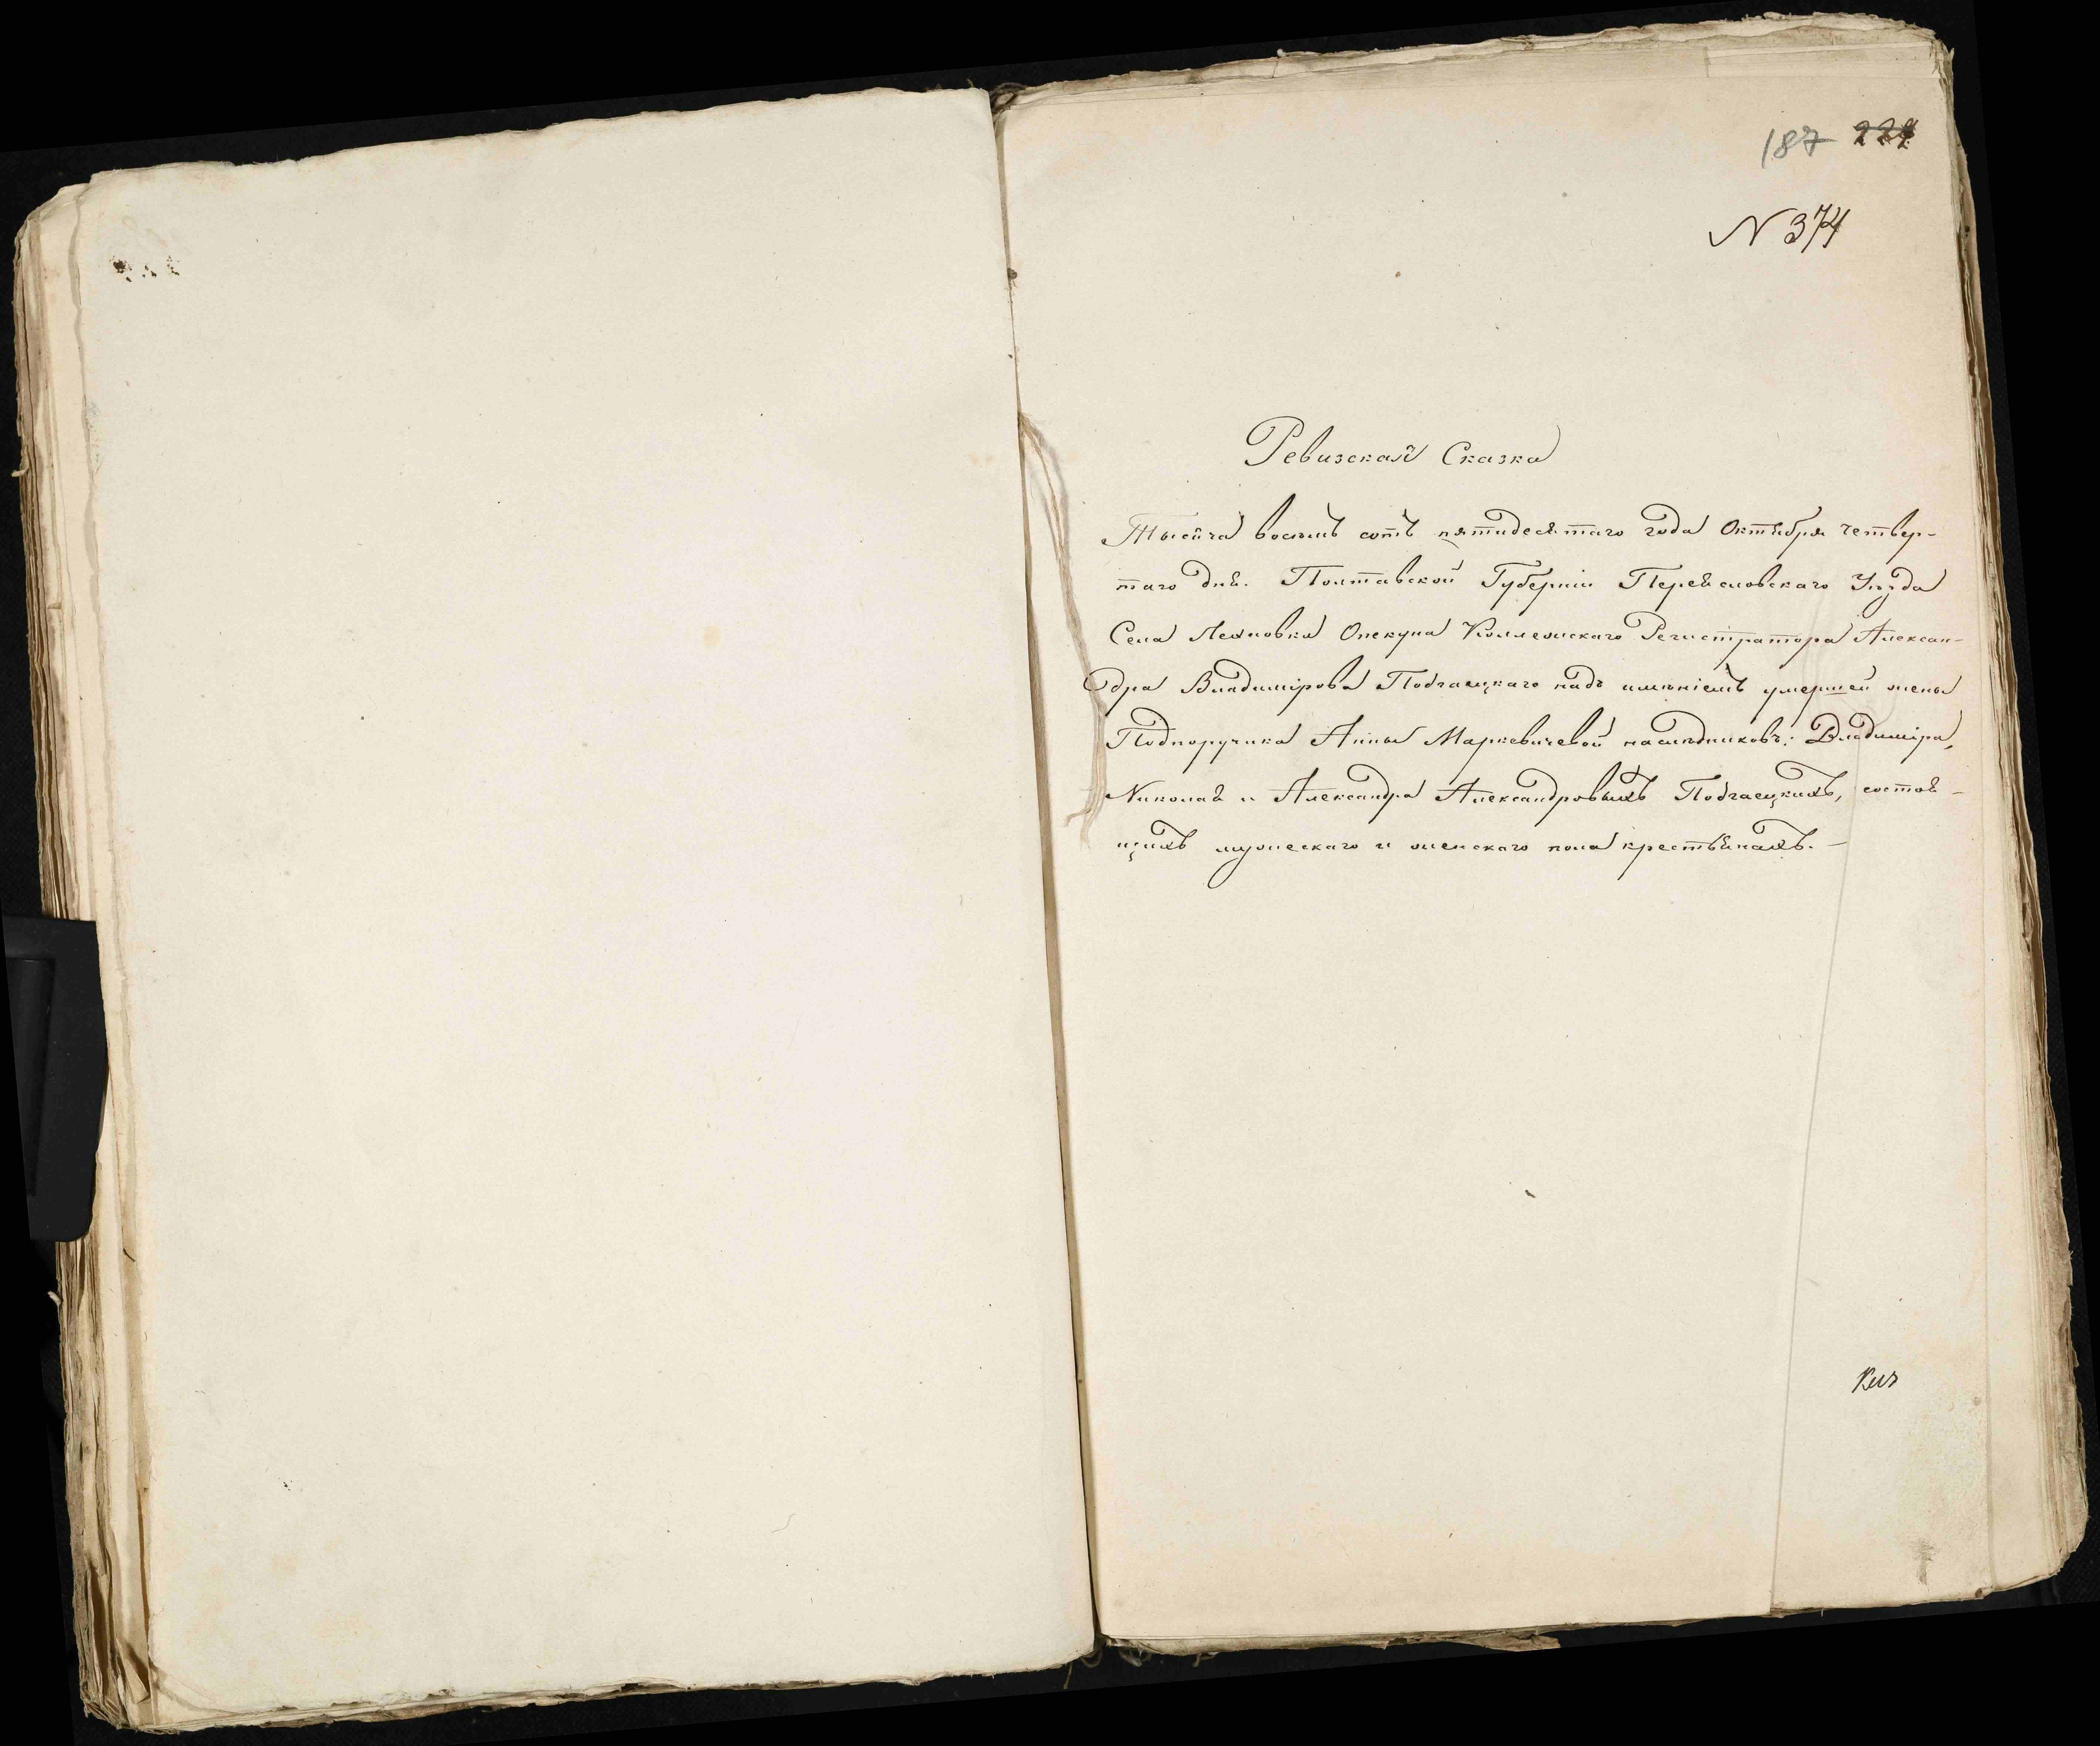 187 229
N 374
Ревизская Сказка
Тысяча восемь сотъ пятидесятаго года Октября четвер-
таго дня. Полтавской Губерніи Переясловскаго Уѣзда
Села Лехновки Опекуна Коллежскаго Регистратора Алексан-
дра Владимірова Подгаецкаго надъ имѣніемъ умершей жены
Подпоручика Анны Маркевичевой наслѣдниковъ: Владиміра,
Николая и Александра Александровыхъ Подгаецкихъ, состоя-
щихъ мужескаго и женскаго пола крестьянахъ.-